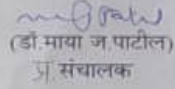 (डॉ.माया ज.पाटील)
प्र. संचालक